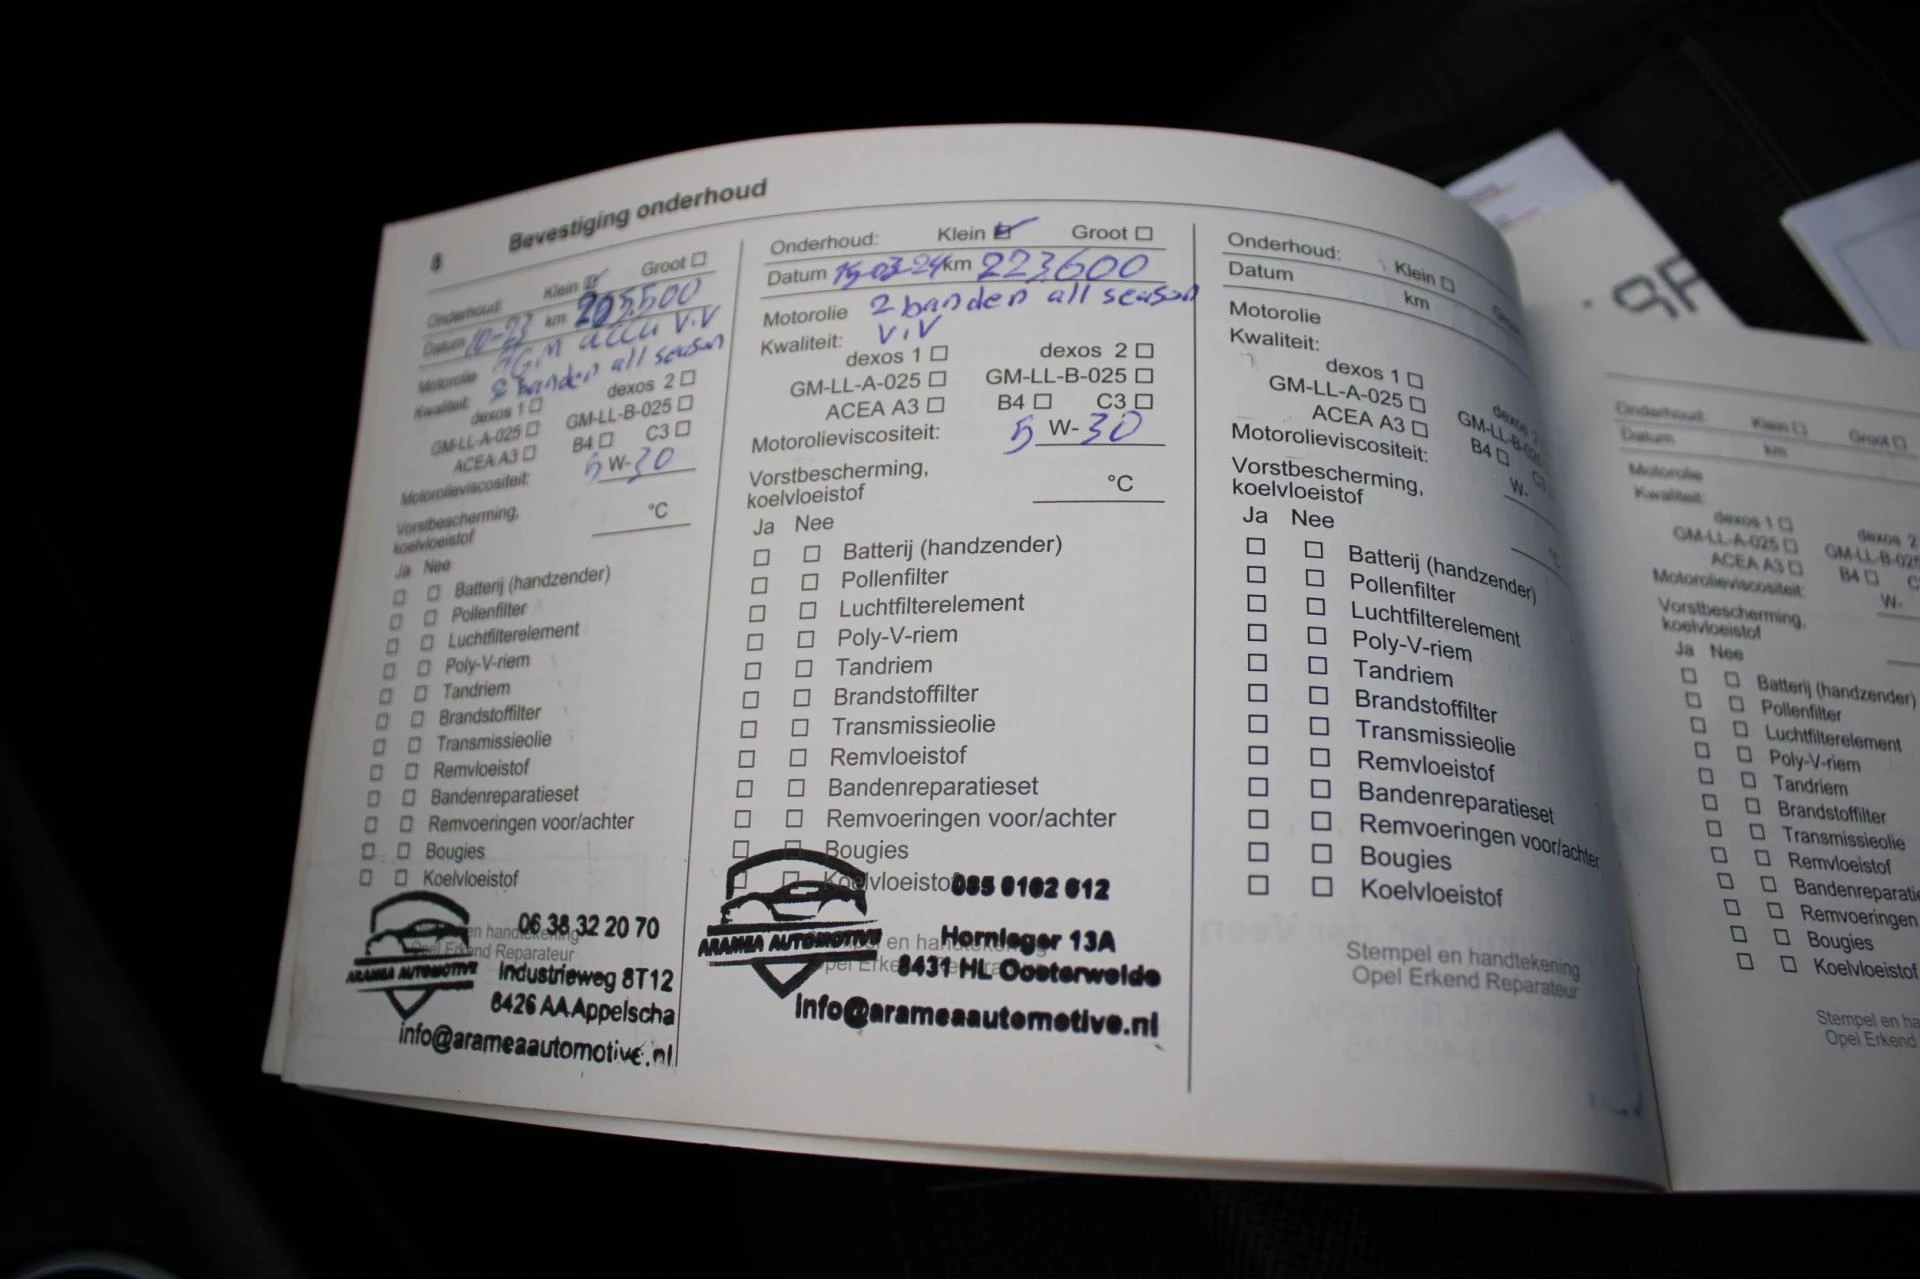 8 Bevestiging onderhoud
Onderhoud: Klein Groot
Datum 10-23 km 205.500
Motorolie AGM accu V.V
Kwaliteit: 2 banden all season
dexos 1 dexos 2
GM-LL-A-025 GM-LL-B-025
ACEA A3 B4 C3
Motorolieviscositeit: 5 W-30
Vorstbescherming,
koelvloeistof °C
Ja Nee
Batterij (handzender)
Pollenfilter
Luchtfilterelement
Poly-V-riem
Tandriem
Brandstoffilter
Transmissieolie
Remvloeistof
Bandenreparatieset
Remvoeringen voor/achter
Bougies
Koelvloeistof
06 38 32 20 70
en handtekening
Opel Erkend Reparateur
ARAMEA AUTOMOTIVE
Industrieweg 8T12
8426 AA Appelscha
info@arameaautomotive.nl
Onderhoud: Klein Groot
Datum 15-03-24 km 223600
Motorolie 2 banden all season
Kwaliteit: V.V
dexos 1 dexos 2
GM-LL-A-025 GM-LL-B-025
ACEA A3 B4 C3
Motorolieviscositeit: 5 W-30
Vorstbescherming,
koelvloeistof °C
Ja Nee
Batterij (handzender)
Pollenfilter
Luchtfilterelement
Poly-V-riem
Tandriem
Brandstoffilter
Transmissieolie
Remvloeistof
Bandenreparatieset
Remvoeringen voor/achter
Bougies
Koelvloeistof 085 0102 612
ARAMEA AUTOMOTIVE
Hornleger 13A
8431 HL Oosterwolde
Info@arameaautomotive.nl
Onderhoud: Klein
Datum km
Motorolie
Kwaliteit:
dexos 1 dexos 2
GM-LL-A-025 GM-LL-B-025
ACEA A3 B4 C3
Motorolieviscositeit: W-
Vorstbescherming,
koelvloeistof °C
Ja Nee
Batterij (handzender)
Pollenfilter
Luchtfilterelement
Poly-V-riem
Tandriem
Brandstoffilter
Transmissieolie
Remvloeistof
Bandenreparatieset
Remvoeringen voor/achter
Bougies
Koelvloeistof
Stempel en handtekening
Opel Erkend Reparateur
Onderhoud: Klein Groot
Datum km
Motorolie
Kwaliteit:
dexos 1 dexos 2
GM-LL-A-025 GM-LL-B-025
ACEA A3 B4
Motorolieviscositeit: W-
Vorstbescherming,
koelvloeistof
Ja Nee
Batterij (handzender)
Pollenfilter
Luchtfilterelement
Poly-V-riem
Tandriem
Brandstoffilter
Transmissieolie
Remvloeistof
Bandenreparatie
Remvoeringen
Bougies
Koelvloeistof
Stempel en ha
Opel Erkend